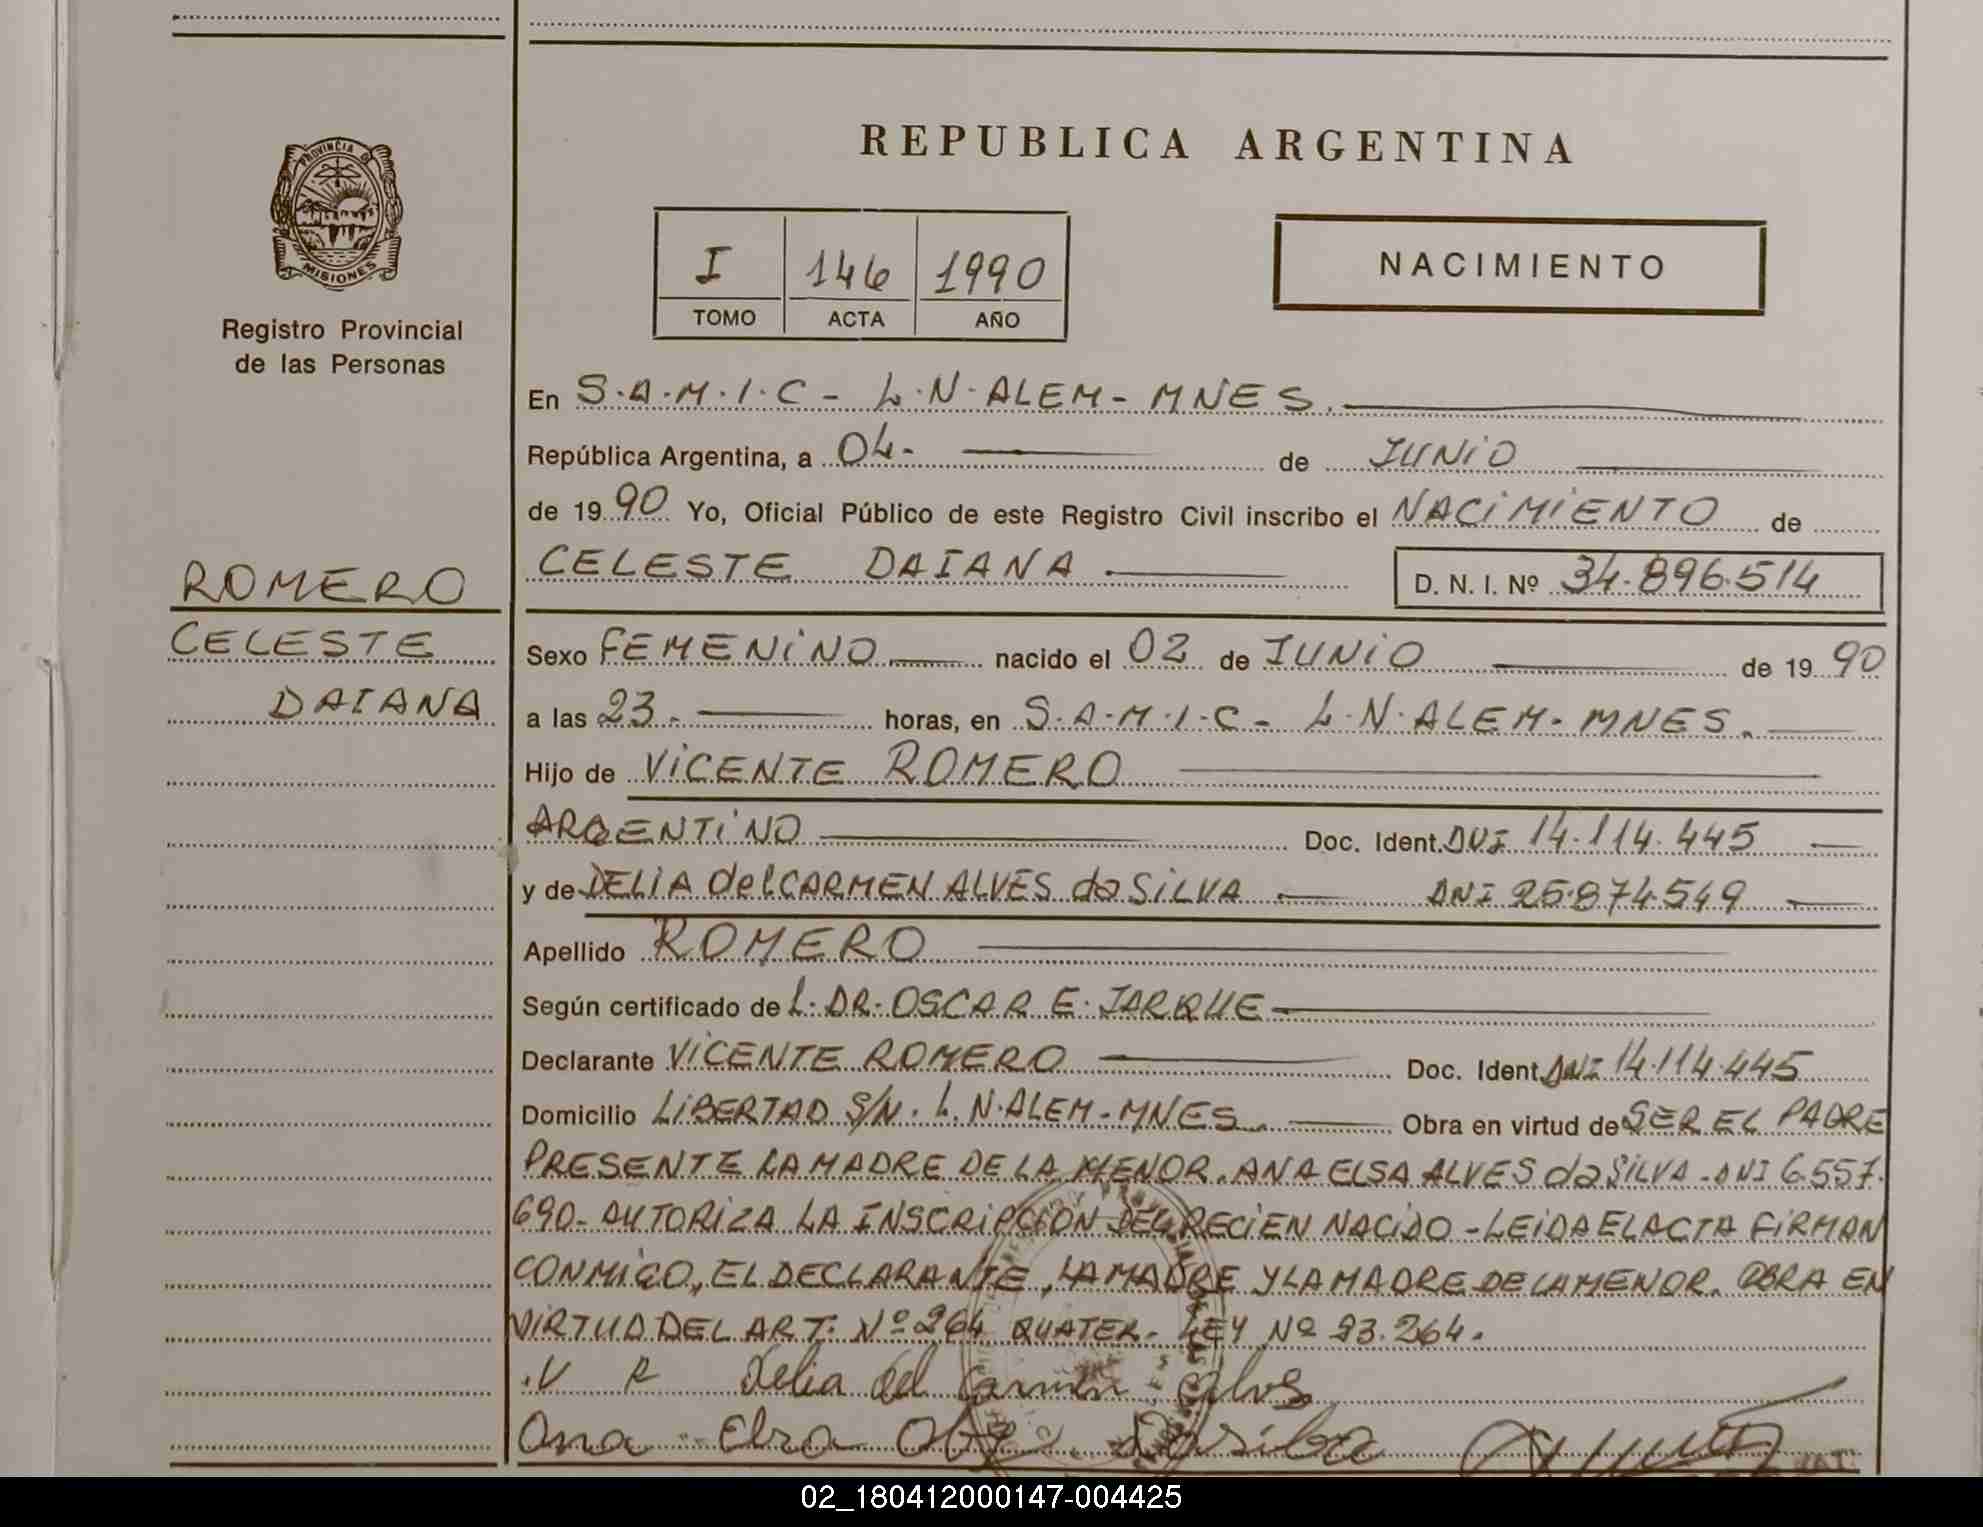 PROVINCIA DE
MISIONES
Registro Provincial
de las Personas
ROMERO
CELESTE
DAIANA
REPUBLICA ARGENTINA
I 146 1990
TOMO ACTA AÑO
NACIMIENTO
En S.A.M.I.C - L.N.ALEM - MNES.
República Argentina, a 04- de JUNIO
de 1990 Yo, Oficial Público de este Registro Civil inscribo el NACIMIENTO de
CELESTE DAIANA D. N. I. Nº 34.896.514
Sexo FEMENINO nacido el 02 de JUNIO de 1990
a las 23- horas, en S.A.M.I.C - L.N.ALEM - MNES.
Hijo de VICENTE ROMERO
ARGENTINO Doc. Ident. DNI 14.114.445
y de DELIA del CARMEN ALVES da SILVA DNI 25.874.549
Apellido ROMERO
Según certificado de L. DR. OSCAR E. JARQUE
Declarante VICENTE ROMERO Doc. Ident. DNI 14.114.445
Domicilio LIBERTAD S/N. L.N.ALEM - MNES. Obra en virtud de SER EL PADRE
PRESENTE LA MADRE DE LA MENOR. ANA ELSA ALVES da SILVA - DNI 6.557.
690- AUTORIZA LA INSCRIPCION DEL RECIEN NACIDO - LEIDA EL ACTA FIRMAN
CONMIGO, EL DECLARANTE, LA MADRE Y LA MADRE DE LA MENOR. OBRA EN
VIRTUD DEL ART. Nº 264 QUATER - LEY Nº 23.264.
V R Delia del Carmen Alves
Ana Elsa Alves Dasilva
02_180412000147-004425